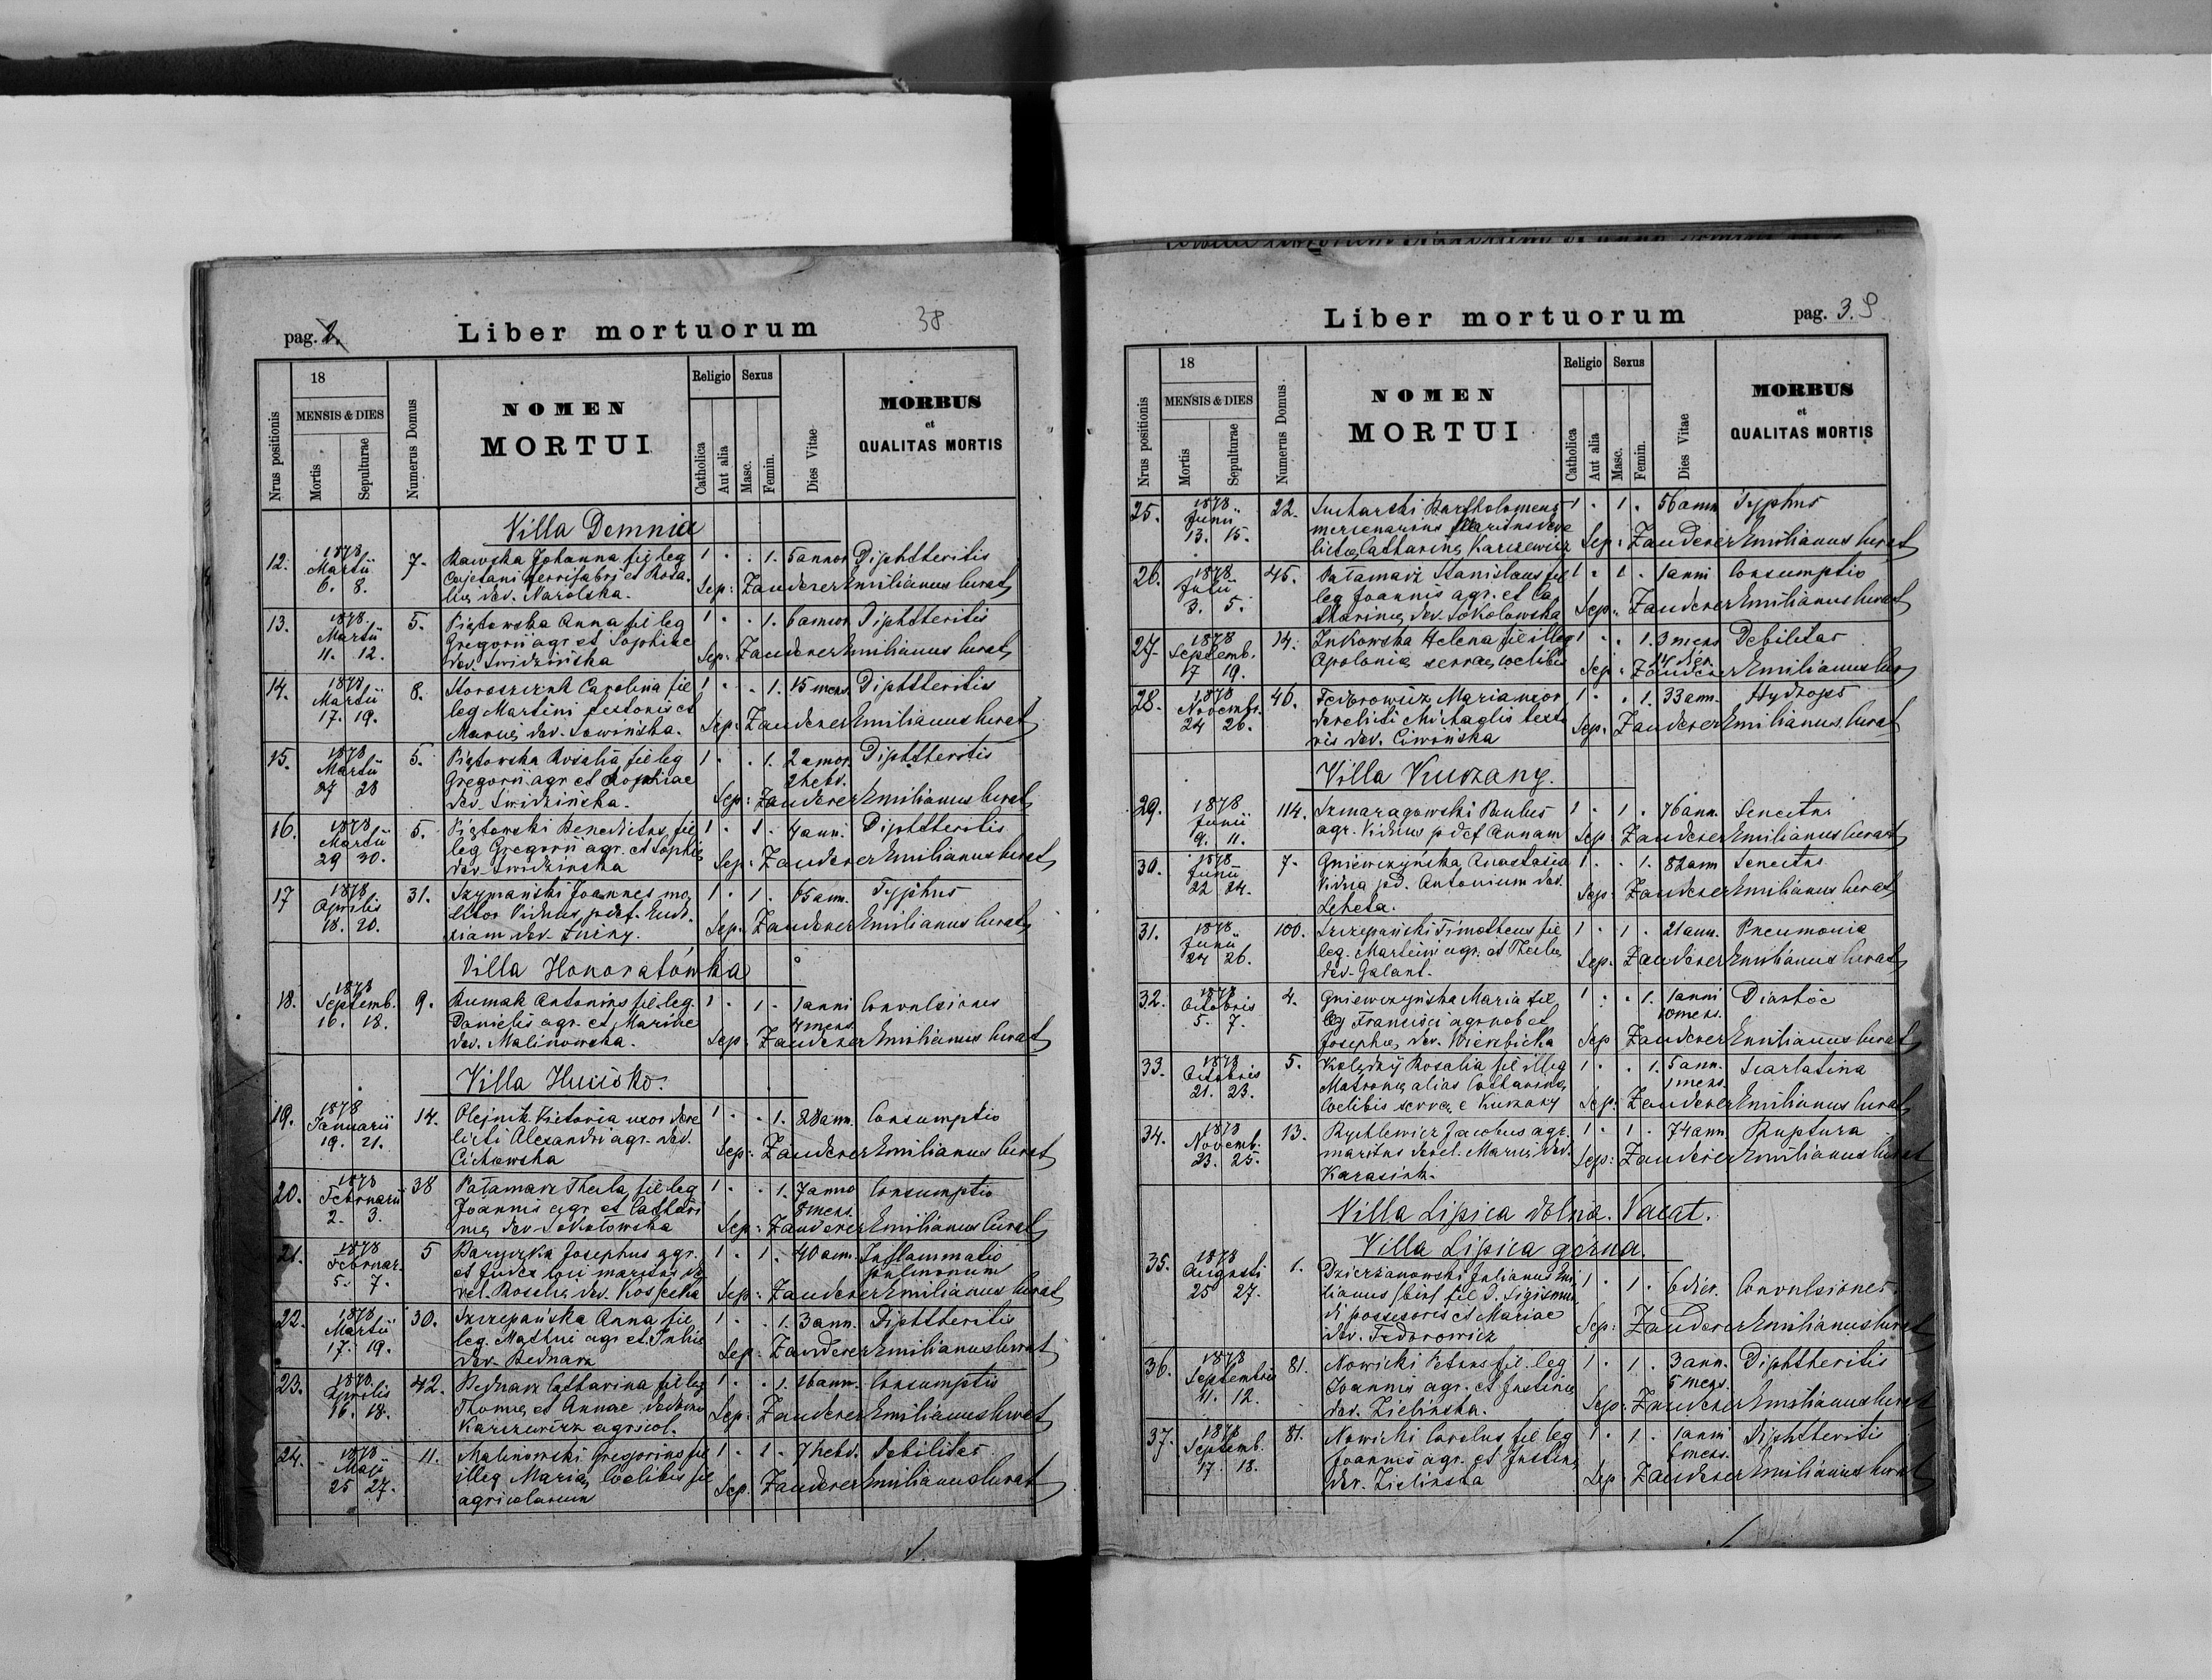 pag. 2.
Liber mortuorum
38
Nrus positionis
18
MENSIS & DIES
Mortis
Sepulturae
Numerus Domus
NOMEN
MORTUI
Religio
Catholica
Aut alia
Sexus
Masc.
Femin.
Dies Vitae
MORBUS
et
QUALITAS MORTIS
Villa Demnia
12. 1878 Martii 6. 8. 7. Rawska Johanna fil leg 1 . . 1. 5 annor Diphtheritis
Cajetani ferrifabri et Rosa-
liae dev. Narolska. Sep: Zauderer Emilianus Curat
13. 1878 Martii 11. 12. 5. Piątowska Anna fil leg 1 . . 1. 6 annor Diphtheritis
Gregorii agr et Sophiae
dev. Swidzińska Sep: Zauderer Emilianus Curat
14. 1878 Martii 17. 19. 8. Carolina fil 1 . . 1. 15 mens. Diphtheritis
leg Martini textoris et
Mariae dev. Sowińska. Sep: Zauderer Emilianus Curat
15. 1878 Martii 27 28 5. Piątowska Rosalia fil leg 1 . . 1. 2 annor Diphtheritis
Gregorii agr et Sophiae 2 hebd.
dev. Swidzińska. Sep: Zauderer Emilianus Curat
16. 1878 Martii 29 30. 5. Piątowski Benedictus fil 1 . 1. 4 anni. Diphtheritis
leg Gregorii agr. et Sophiae
dev Swidzińska Sep: Zauderer Emilianus Curat
17 1878 Aprilis 18. 20. 31. Szymański Joannes mo- 1 . 1. 65 ann. Typhus
litor Viduus p. def. Eudo-
xiam dev. Sep: Zauderer Emilianus Curat
Villa Honoratówka
18. 1878 Septemb. 16. 18. 9. Rumak Antonius fil leg. 1 . 1. 1 anni Convulsiones
Danielis agr. et Mariae 4 mens.
dev. Malinowska. Sep: Zauderer Emilianus Curat
Villa Huisko.
19. 1878 Januarii 19. 21. 14. Olejnik Victoria uxor dere 1 . . 1. 28 ann. Consumptio
licti Alexandri agr. dev.
Cichowska Sep: Zauderer Emilianus Curat
20. 1878 Februarii 2. 3. 38 Pałamarz Thecla fil leg 1 . . 1. 7 anno Consumptio
Joannis agr et Cathari 8 mens.
nae dev. Sokołowska Sep: Zauderer Emilianus Curat
21. 1878 Februar. 5. 7. 5 Baryczka Josephus agr. 1 . 1. 40 ann. Inflammatio
et Judex loci maritus de pulmonum
rel. Rosaliae dev. Sep: Zauderer Emilianus Curat
22. 1878 Martii 17. 19. 30. Szczepańska Anna fil 1 . . 1. 3 ann. Diphtheritis
leg. agr et Juliae
dev. Bednarz Sep: Zauderer Emilianus Curat
23. 1878 Aprilis 16. 18. 42. Bednarz Catharina fil leg 1 . . 1. 16 ann. Consumptio
Thomae et Annae
Karczewicz agricol. Sep: Zauderer Emilianus Curat
24. 1878 Maji 25 27. 11. Malinowski Gregorius fil 1 . 1 . 7 hebd. Debilitas
illeg Mariae Coelibis fil
agricolarum Sep. Zauderer Emilianus Curat
Liber mortuorum
pag. 3.9
Nrus positionis
18
MENSIS & DIES
Mortis
Sepulturae
Numerus Domus.
NOMEN
MORTUI
Religio
Catholica
Aut alia
Sexus
Masc.
Femin.
Dies Vitae
MORBUS
et
QUALITAS MORTIS
25. 1878 Junii 13. 15. 22. Sucharski Bartholomeus 1 . 1. 56 ann Typhus
mercenarius Maritus dere
lictae Catharinae Karczewicz Sep: Zauderer Emilianus Curat
26. 1878 Julii 3. 5. 45. Pałamarz Stanislaus fil 1 . 1 . 1 anni Consumptio
leg Joannis agr. et Ca
tharinae dev. Sokolowska Sep: Zauderer Emilianus Curat
27. 1878 Septemb. 17 19. 14. Helena fil illeg 1 . . 1. 3 mens Debilitas
Apoloniae servae coelibis 14 dier. Sep: Zauderer Emilianus Cur
28. 1878 Novemb. 24 26. 46. Fedorowicz Maria uxor 1 . . 1. 33 ann. Hydrops
derelicti Michaelis texto
ris dev. Ciwińska Sep. Zauderer Emilianus Curat
Villa Kurzany.
29. 1878 Junii 9. 11. 114. Szmaragowski Paulus 1 . 1 . 76 ann. Senectus
agr. Viduus p def Annam Sep: Zauderer Emilianus Curat
30. 1878 Junii 22 24. 7. Gniewczyńska Anastasia 1 . . 1. 82 ann Senectus
Vidua p d. Antonium dev.
Leheta. Sep: Zauderer Emilianus Curat
31. 1878 Junii 24 26. 100. Szczepański Timotheus fil 1 . 1 . 21 ann. Pneumonia
leg. Martini agr. et Theclae
dev. Galant. Sep. Zauderer Emilianus Curat
32. 1878 Octobris 5. 7. 4. Gniewczyńska Maria fil 1 . . 1. 1 anni
leg Francisci agr nob et 10 mens.
Josephae dev. Wierzbicka Sep Zauderer Emilianus Curat
33. 1878 Octobris 21. 23. 5. Rosalia fil illeg 1 . . 1. 5 ann. Scarlatina
Matronae alias Catharinae 1 mens.
Coelibis servae e Kurzany Sep: Zauderer Emilianus Curat
34. 1878 Novemb. 23. 25. 13. Rychlewicz Jacobus agr. 1 . 1 . 74 ann. Ruptura
maritus derel. Mariae dev.
Karasink. Sep: Zauderer Emilianus Curat
Villa Lipica dolna. Vacat.
Villa Lipica górna.
35. 1878 Augusti 25 27. 1. Dzierżanowski Julianus Emi- 1 . 1 . 6 dier. Convulsiones
lianus fil D. Sigismun
di possesoris et Mariae
dev. Fedorowicz Sep: Zauderer Emilianus Curat
36. 1878 Septembris 11. 12. 81. Nowicki Petrus fil. leg 1 . 1 . 3 ann. Diphtheritis
Joannis agr. et Justinae 5 mens.
dev. Zielińska. Sep: Zauderer Emilianus Curat
37. 1878 Septemb. 17 18. 81. Nowicki Carolus fil leg 1 . 1 . 1 anni Diphtheritis
Joannis agr. et Justinae 6 mens.
dev. Zielinska Sep Zauderer Emilianus Curat